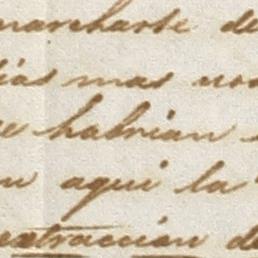 marcharse de
dias mas nos
se habrian
n aqui la
extraccion de